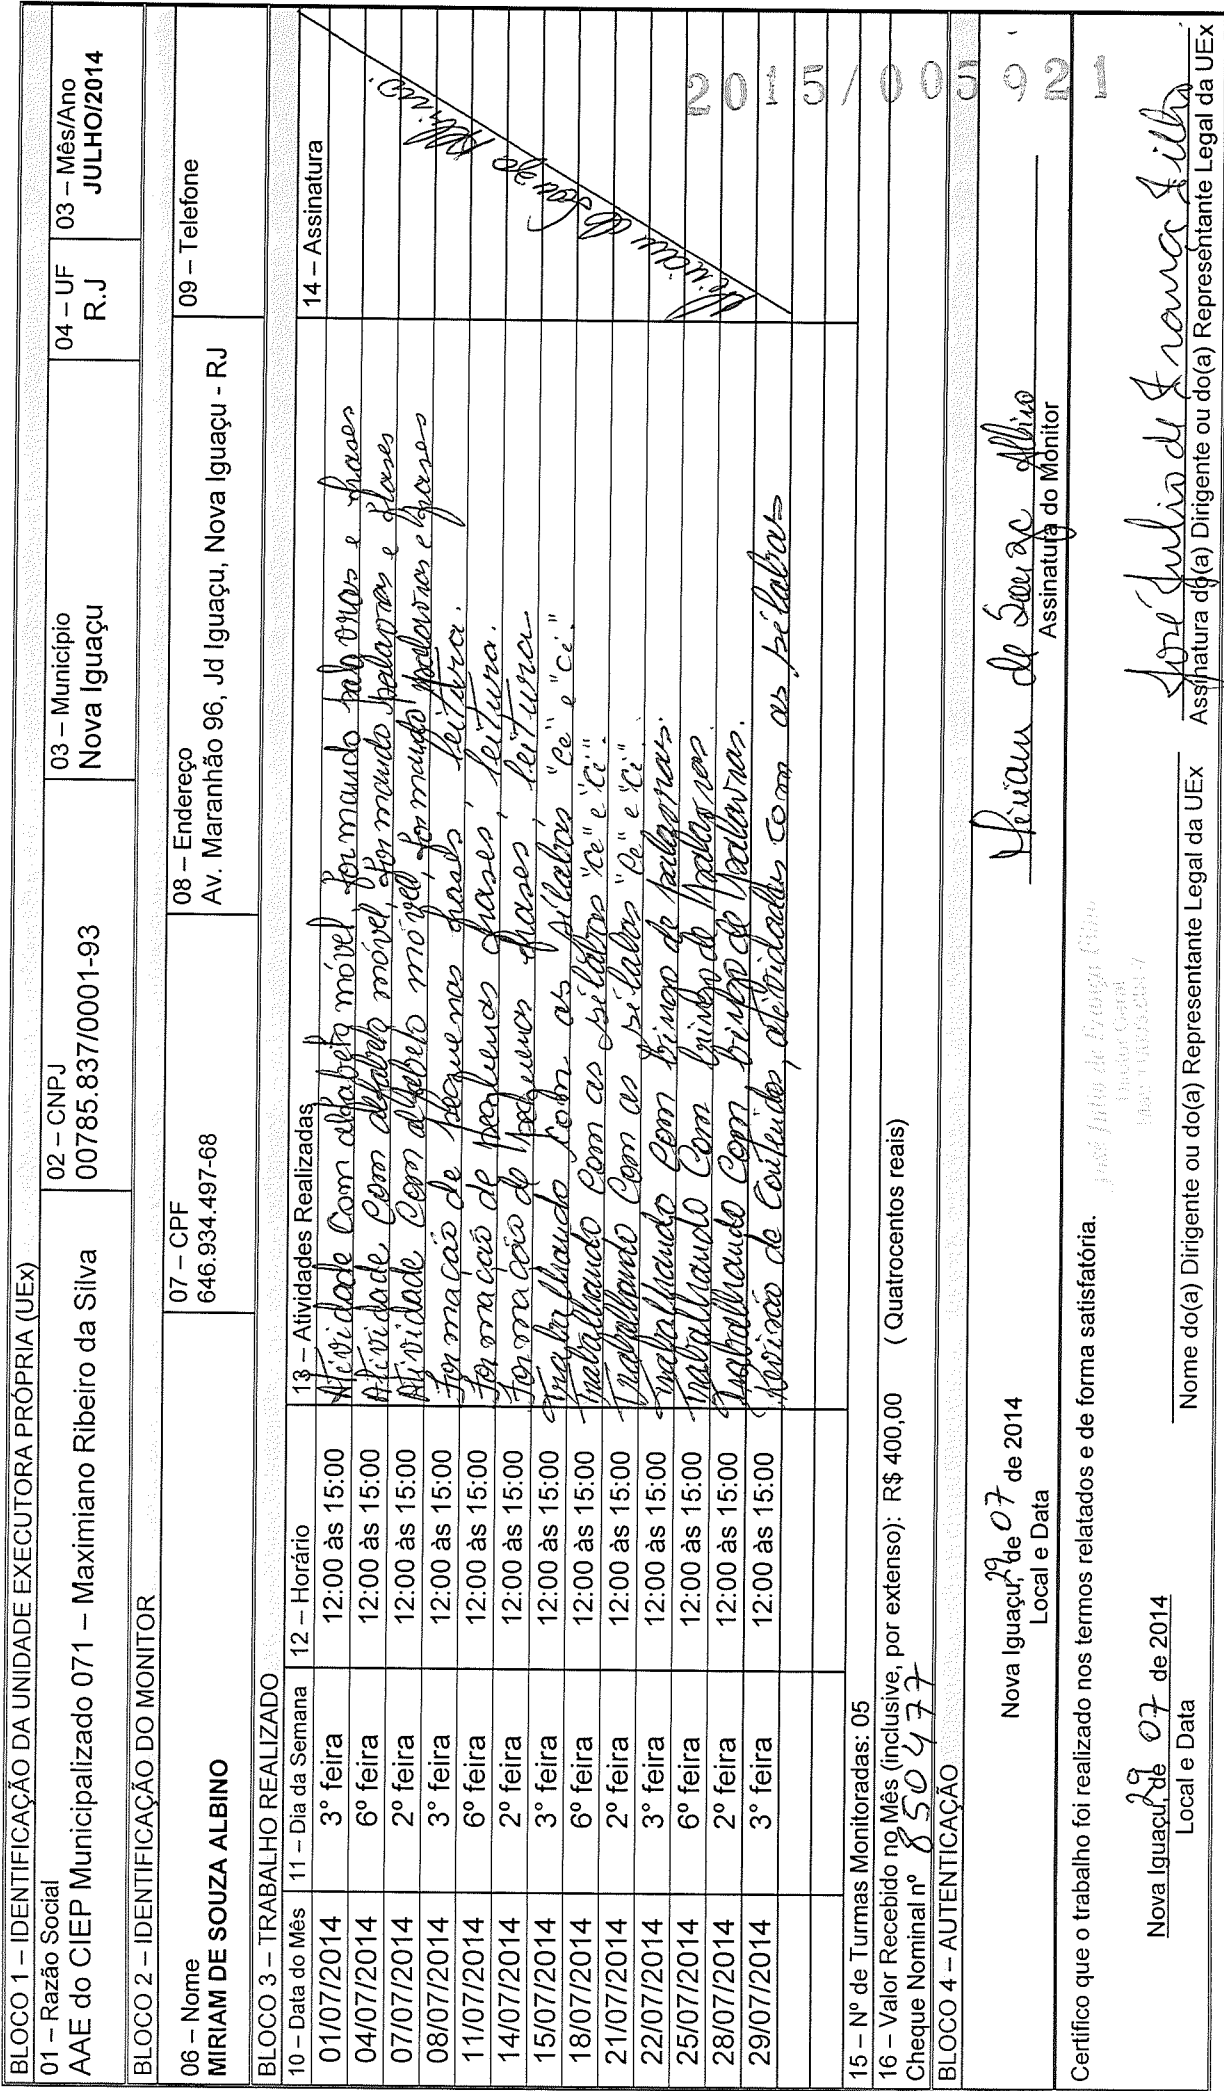 BLOCO 1 – IDENTIFICAÇÃO DA UNIDADE EXECUTORA PRÓPRIA (UEx)
01 – Razão Social 02 – CNPJ 03 – Município 04 – UF 03 – Mês/Ano
AAE do CIEP Municipalizado 071 – Maximiano Ribeiro da Silva 00785.837/0001-93 Nova Iguaçu R.J JULHO/2014
BLOCO 2 – IDENTIFICAÇÃO DO MONITOR
06 – Nome 07 – CPF 08 – Endereço 09 – Telefone
MIRIAM DE SOUZA ALBINO 646.934.497-68 Av. Maranhão 96, Jd Iguaçu, Nova Iguaçu - RJ
BLOCO 3 – TRABALHO REALIZADO
10 – Data do Mês 11 – Dia da Semana 12 – Horário 13 – Atividades Realizadas 14 – Assinatura
01/07/2014 3º feira 12:00 às 15:00 Atividade com alfabeto móvel, formando palavras e frases
04/07/2014 6º feira 12:00 às 15:00 Atividade com alfabeto móvel, formando palavras e frases
07/07/2014 2º feira 12:00 às 15:00 Atividade com alfabeto móvel, formando palavras e frases
08/07/2014 3º feira 12:00 às 15:00 Formação de pequenas frases, leitura.
11/07/2014 6º feira 12:00 às 15:00 Formação de pequenas frases, leitura.
14/07/2014 2º feira 12:00 às 15:00 Formação de pequenas frases, leitura
15/07/2014 3º feira 12:00 às 15:00 Trabalhando com as sílabas "ce" e "ci".
18/07/2014 6º feira 12:00 às 15:00 Trabalhando com as sílabas "ce" e "ci".
21/07/2014 2º feira 12:00 às 15:00 Trabalhando com as sílabas "ce" e "ci".
22/07/2014 3º feira 12:00 às 15:00 Trabalhando com bingo de palavras.
25/07/2014 6º feira 12:00 às 15:00 Trabalhando com bingo de palavras.
28/07/2014 2º feira 12:00 às 15:00 Trabalhando com bingo de palavras.
29/07/2014 3º feira 12:00 às 15:00 Revisão de conteúdos, atividades com as sílabas
Miriam de Souza Albino.
2015/005921
15 – Nº de Turmas Monitoradas: 05
16 – Valor Recebido no Mês (inclusive, por extenso): R$ 400,00 ( Quatrocentos reais)
Cheque Nominal nº 850477
BLOCO 4 – AUTENTICAÇÃO
Nova Iguaçu, 29 de 07 de 2014 Miriam de Souza Albino
Local e Data Assinatura do Monitor
Certifico que o trabalho foi realizado nos termos relatados e de forma satisfatória.
José Julio de França Filho
Nova Iguaçu, 29 de 07 de 2014 José Julio de França Filho
Local e Data Nome do(a) Dirigente ou do(a) Representante Legal da UEx Assinatura do(a) Dirigente ou do(a) Representante Legal da UEx